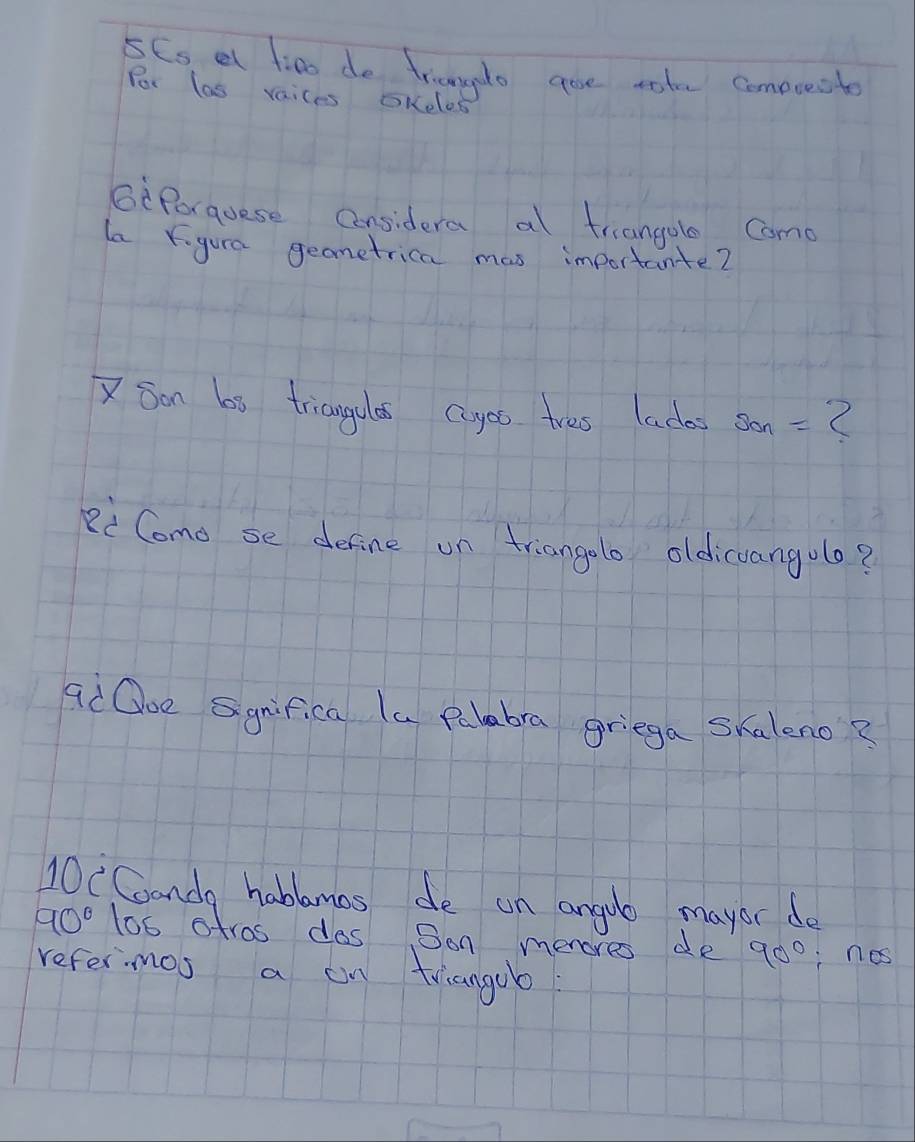 5Es el tipo de triangulo que esta compuesto
Por las raices skelos
6¿Porquese considera al triangulo como
la figura geometrica mas importante?
7 Son los triangulos cuyos tres lados son = ?
8¿Como se define un triangolo oldicuangulo?
9¿Que significa la Palabra griega Skaleno?
10¿Coando hablamos de un angulo mayor de
90° los otros dos son menores de 90°; nos
referimos a un triangulo: